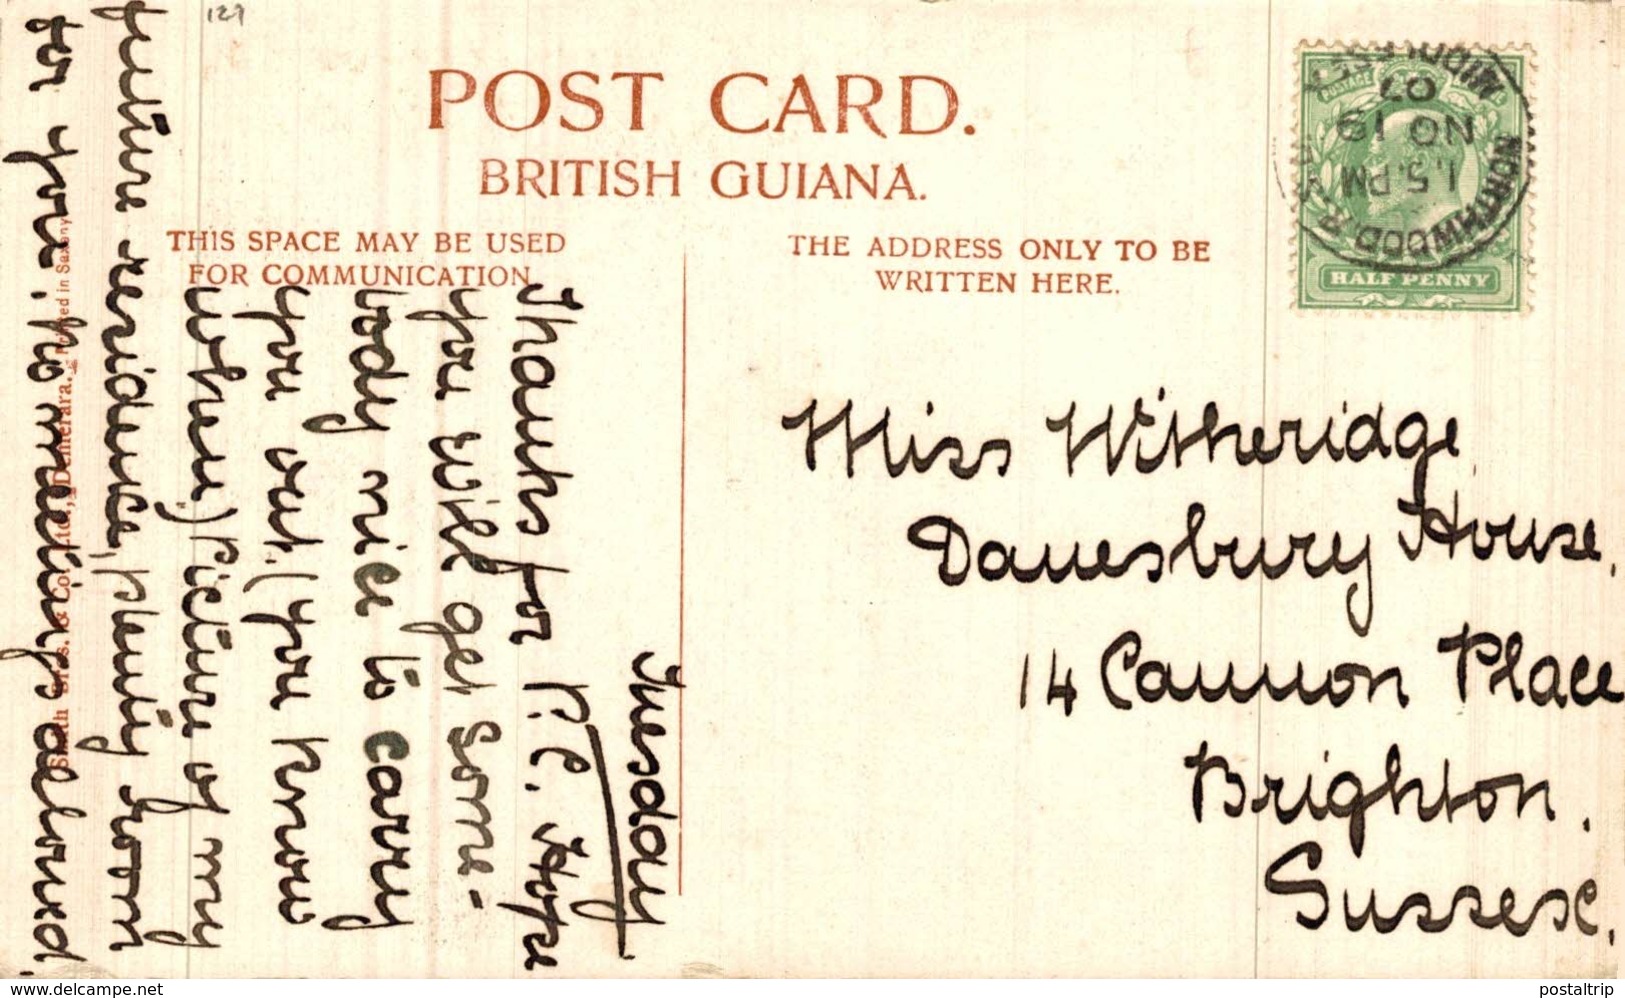 127
POST CARD.
BRITISH GUIANA.
THIS SPACE MAY BE USED
FOR COMMUNICATION.
THE ADDRESS ONLY TO BE
WRITTEN HERE.
NORTHWOOD R.S.O.
MIDDLESEX
1.5.PM
NO 19
07
POSTAGE
HALF PENNY
Tuesday
Thanks for P.C. Hope
you will get some-
body nice to carry
you out. (you know
when.) Picture of my
future residence, plenty room
for you, no meetings allowed.
Miss Witheridge
Danesbury House.
14 Cannon Place
Brighton.
Sussex.
Smith Bros. & Co. Ltd., Demerara. Printed in Saxony
www.delcampe.net
postaltrip